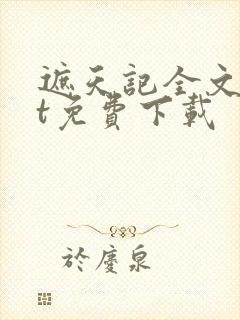 遮天記全文
t免費下載
於慶泉